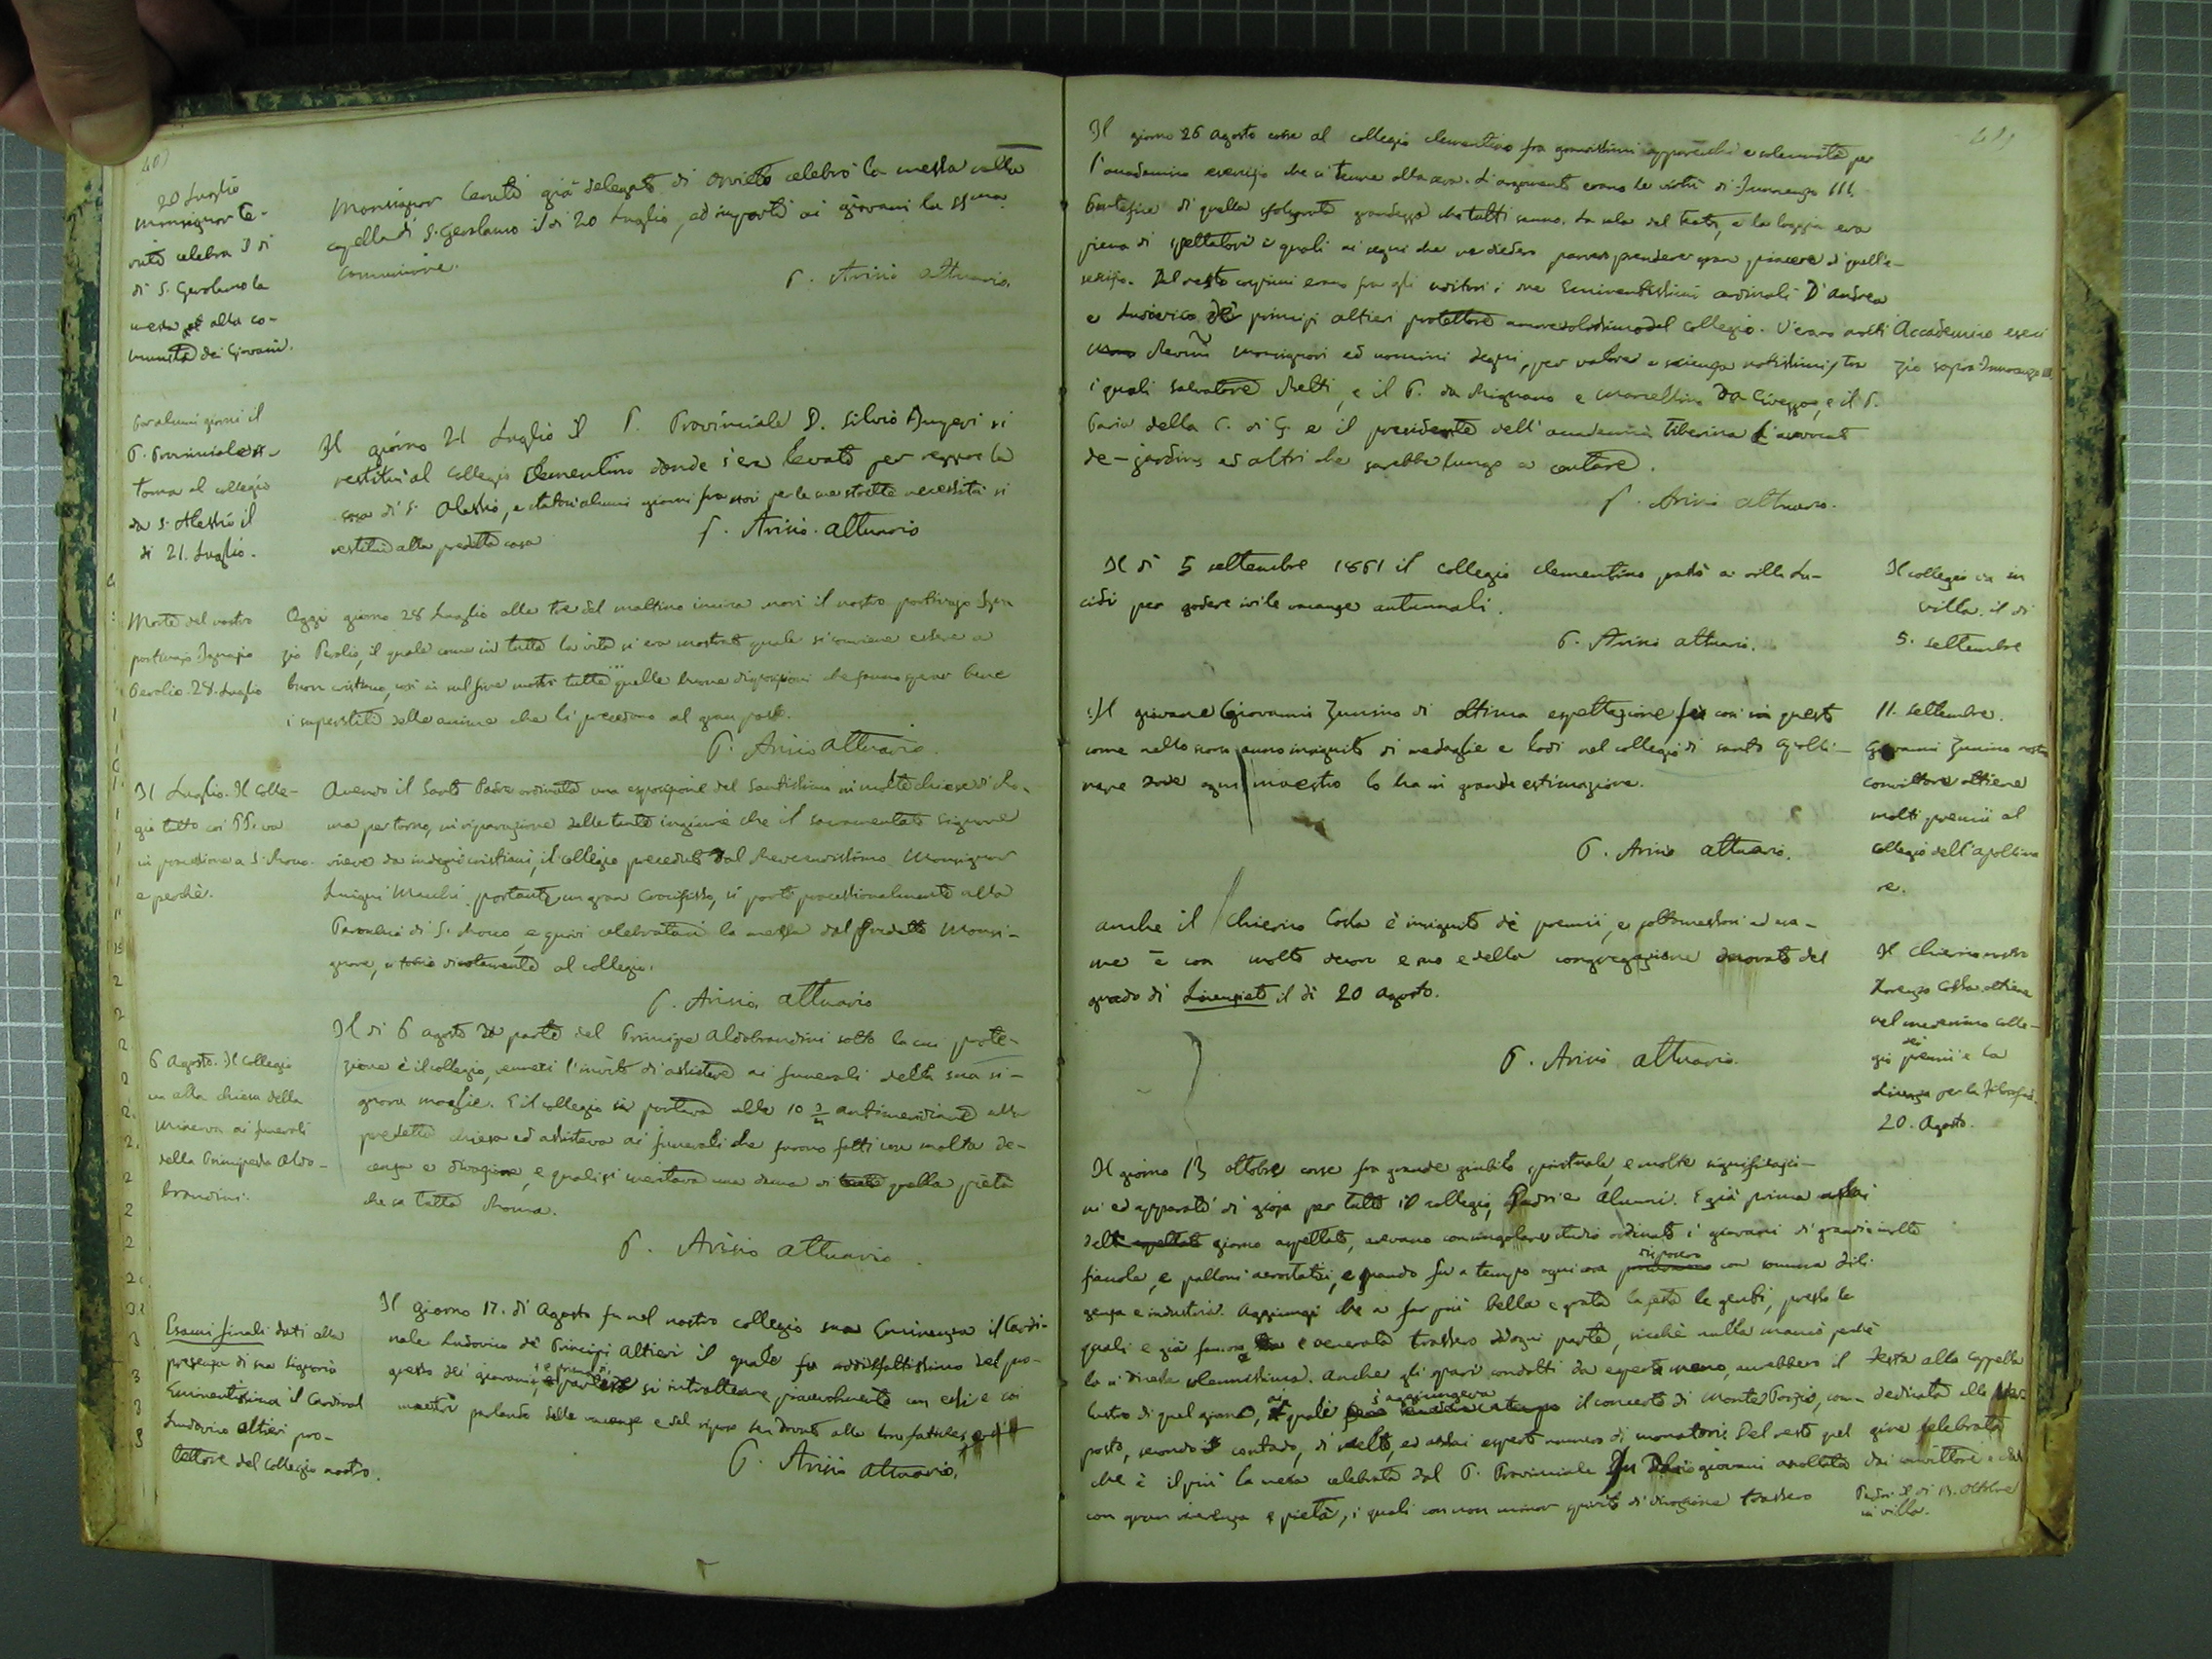 20 Luglio
Monsignor Ce-
celebra il di
di S. Gerolamo la
messa alla co-
munità dei Giovani.
Monsignor già delegato di Orvieto celebrò la messa nella
capella di S. Gerolamo il di 20 Luglio, ed impartì ai giovani la SSma
Comunione.
P. Arisio attuario.
Per alcuni giorni il
P. Provinciale ri-
torna al collegio
da S. Alessio il
di 21. Luglio.
Il giorno 21 Luglio il P. Provinciale D. Silvio Imperi si
restituì al Collegio Clementino donde s'era levato per reggere la
casa di S. Alessio, e statovi alcuni giorni fra noi per le sue strette necessità si
restituì alla predetta casa
P. Arisio. attuario
Morte del nostro
portinajo Ignazio
Perolio. 28. Luglio
Oggi giorno 28 Luglio alle tre del mattino morì il nostro portinajo Igna
zio Perolio, il quale come in tutta la vita si era mostrato quale si conviene essere a
buon cristiano, così in sul fine mostrò tutte quelle buone disposizioni che fanno sperar bene
i superstiti delle anime che li precedono al gran passo.
P. Arisio attuario.
31 Luglio. Il Colle-
gio tutto coi PP. va
in processione a S. Rocco
e perchè.
Avendo il Santo Padre ordinata una esposizione del Santissimo in molte chiese di Ro-
ma per torno, in riparazione delle tante ingiurie che il sacramentato Signore
riceve da indegni cristiani, il collegio preceduto dal Reverendissimo Monsignor
Luigi Macchi portante un gran Crocifisso, si portò processionalmente alla
Parrochia di S. Rocco, e quivi celebratasi la messa dal predetto Monsi-
gnore, si tornò divotamente al collegio.
P. Arisio, attuario
6 Agosto. Il Collegio
va alla chiesa della
Minerva ai funerali
della Principessa Aldo-
brandini.
Il di 6 agosto da parte del Principe Aldobrandini sotto la cui prote-
zione è il collegio, venneci l'invito di assistere ai funerali della sua si-
gnora moglie. E il collegio si portava alle 10 antimeridiane alla
predetta chiesa ed assisteva ai funerali che furono fatti con molta de-
cenza e divozione, e quali si meritava una dama di quella pietà
che sa tutta Roma.
P. Arisio attuario.
Esami finali dati alla
presenza di sua Signoria
Eminentissima il Cardinal
Ludovico Altieri pro-
tettore del collegio nostro.
Il giorno 17. di Agosto fu nel nostro collegio sua Eminenza il Cardi-
nale Ludovico de' Principi Altieri il quale fu soddisfattissimo del pro-
gresso dei giovani, e prima di partire si intrattenne piacevolmente con essi e coi
maestri parlando delle vacanze e del riposo ben dovuto alle loro fatiche
P. Arisio attuario.
Il giorno 26 Agosto corse al collegio clementino fra grandissimi apparecchi e solennità per
l'accademico esercizio che si tenne alla sera. L'argomento erano le virtù di Innocenzo III.
Pontefice di quella sfolgorata grandezza che tutti sanno. La sala del teatro, e la loggia era
piena di spettatori i quali ai segni che ne diedero parvero prendere gran piacere di quell'e-
sercizio. Del resto cospicui erano fra gli uditori i due Eminentissimi cardinali D'Andrea
e Ludovico de' principi Altieri protettore amorevolissimo del collegio. V'erano molti
Revmi Monsignori ed uomini degni, per valore e scienza notissimi, tra
i quali Salvatore Betti, e il P. da Rignano e Marcellino da Civezza, e il P.
Paria della C. di G. e il presidente dell'accademia Tiberina l'avvocato
de-jardins ed altri che sarebbe lungo a contare.
P. Arisio attuario.
Accademico eserci
zio sopra Innocenzo III.
Il di 5 settembre 1861 il Collegio Clementino passò a villa Lu-
cidi per godere ivi le vacanze autunnali.
P. Arisio attuario.
Il collegio va in
villa. il di
5. settembre
Il giovane Giovanni Zunino di ottima espettazione fu così in questo
come nello scorso anno insignito di medaglie e lodi nel collegio di santo Apolli-
nare dove ogni maestro lo ha in grande estimazione.
P. Arisio attuario.
11. settembre.
Giovanni Zunino nostro
convittore ottiene
molti premii al
collegio dell'apollina
re.
anche il Chierico Cossa è insignito di premii, e sottomessosi ad esa-
me è con molto decoro e suo e della congregazione onorato del
grado di Licenziato il di 20 Agosto.
P. Arisio attuario.
Il chierico nostro
Lorenzo Cossa ottiene
nel medesimo colle-
gio dei premii e la
Licenza per la filosofia.
20. Agosto.
Il giorno 13 ottobre corse fra grande giubilo spirituale, e molte significazio-
ni ed apparati di gioja per tutto il collegio, Padri e Alunni. E già prima assai
dell' aspettato giorno aspettato, avevano con singolare studio ordinato i giovani di grandi molte
fiaccole, e palloni aerostatici, e quando fu a tempo ogni cosa disposero con somma dili-
genza e industria. Aggiungi che a far più bella e grata la festa le genti, presso le
quali è già famosa e venerata trassero da ogni parte, sicchè nulla mancò perchè
la si dicesse solennissima. Anche gli spari condotti da esperta mano, accrebbero il
lustro di quel giorno, ai quali s'aggiungeva il concerto di Monte Porzio, com-
posto, secondo il contado, di scelto, ed assai esperto numero di suonatori. Del resto quel
che è il più la messa celebrata dal P. Provinciale fu dai giovani ascoltata
con gran riverenza e pietà, i quali con non minor spirito di divozione trassero
Festa alla Cappella
dedicata alla Ver-
gine celebrata
dai convittori e dai
Padri il di 13. ottobre
in villa.